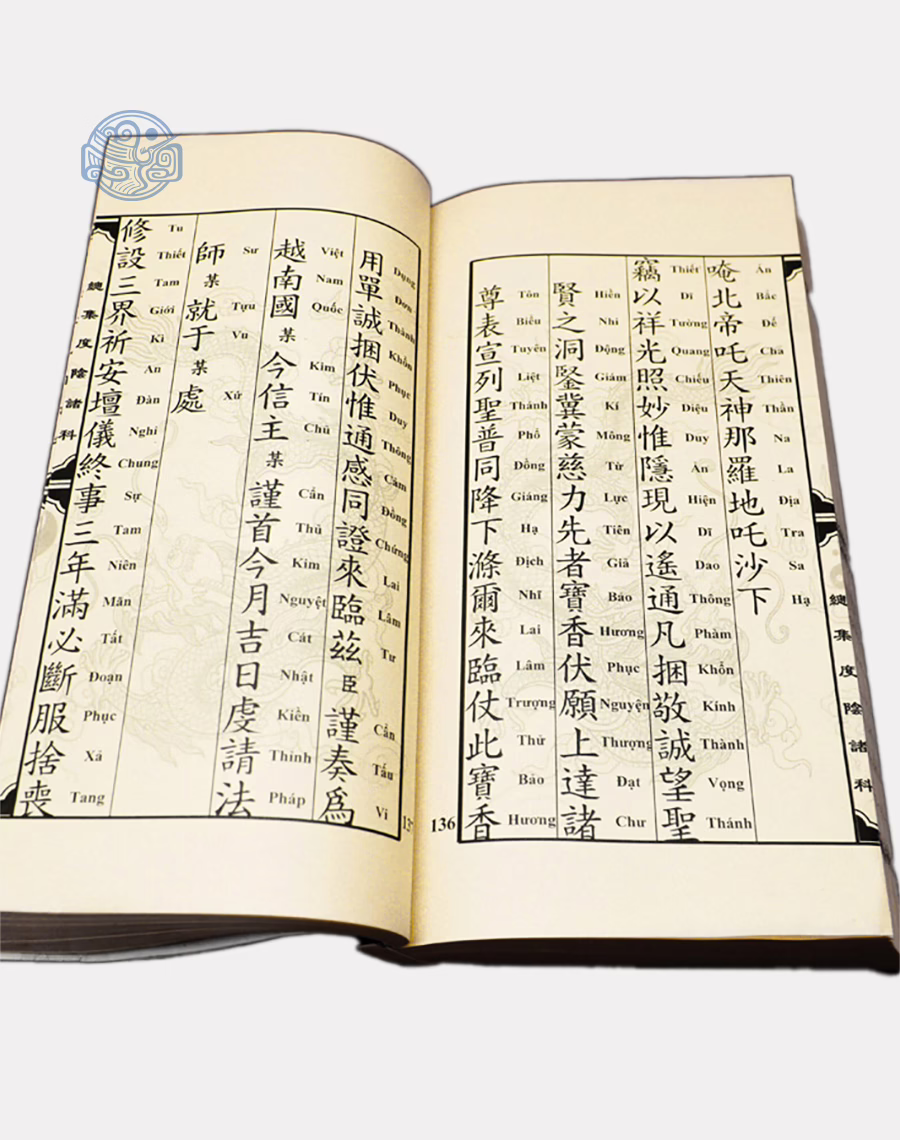 唵北帝吒天神那羅地吒沙下
Án Bắc Đế Cha Thiên Thần Na La Địa Tra Sa Hạ
竊以祥光照妙惟隱現以遙通凡捆敬誠望聖
Thiết Dĩ Tường Quang Chiếu Diệu Duy Ẩn Hiện Dĩ Dao Thông Phàm Khổn Kính Thành Vọng Thánh
賢之洞鋻冀蒙慈力先者寶香伏願上達諸
Hiền Nhi Động Giám Kí Mông Từ Lực Tiên Giả Báo Hương Phục Nguyện Thượng Đạt Chư
尊表宣列聖普同降下滌爾來臨仗此寶香
Tôn Biểu Tuyên Liệt Thánh Phổ Đồng Giáng Hạ Địch Nhĩ Lai Lâm Trượng Thử Bảo Hương
總集度陰諸科
136
用單誠捆伏惟通感同證來臨茲臣謹奏爲
Dụng Đơn Thành Khổn Phục Duy Thông Cảm Đồng Chứng Lai Lâm Tư Cẩn Tấu Vi
越南國某今信主某謹首今月吉日虔請法
Việt Nam Quốc Kim Tín Chủ Cẩn Thủ Kim Nguyệt Cát Nhật Kiền Thỉnh Pháp
師某就于某處
Sư Tựu Vu Xứ
修設三界祈安壇儀終事三年滿必斷服捨喪
Tu Thiết Tam Giới Kì An Đàn Nghi Chung Sự Tam Niên Mãn Tất Đoạn Phục Xả Tang
總集度陰諸科